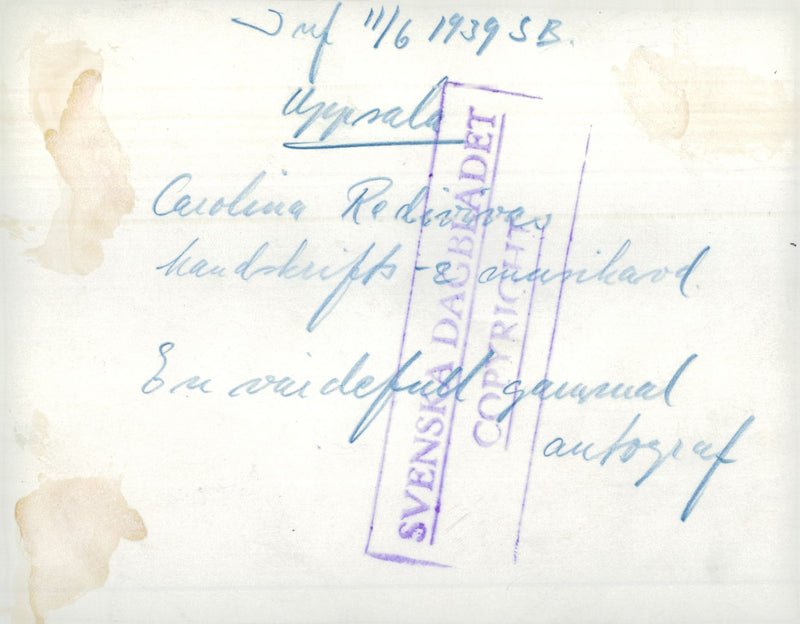 Inf 11/6 1939 SB.
Uppsala
Carolina Redivivas
handskrifts- & musikavd.
En värdefull gammal
autograf
SVENSKA DAGBLADET
COPYRIGHT